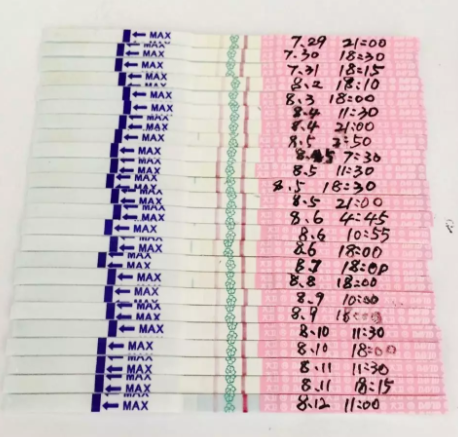 ← MAX 7.29 21:00
← MAX 7.30 18:30
← MAX 7.31 18:15
← MAX 8.2 18:10
← MAX 8.3 18:00
← MAX 8.4 11:30
← MAX 8.4 21:00
← MAX 8.5
← MAX 7:30
← MAX 8.5 11:30
← MAX 8.5 18:30
← MAX 8.5 21:00
← MAX 8.6 4:45
← MAX 8.6 10:55
← MAX 8.6 18:00
← MAX 8.7 18:00
← MAX 8.8 18:00
← MAX 8.9 10:00
← MAX 8.9 18:00
← MAX 8.10 11:30
← MAX 8.10 18:00
← MAX 8.11 11:30
← MAX 8.11 18:15
← MAX 8.12 11:00